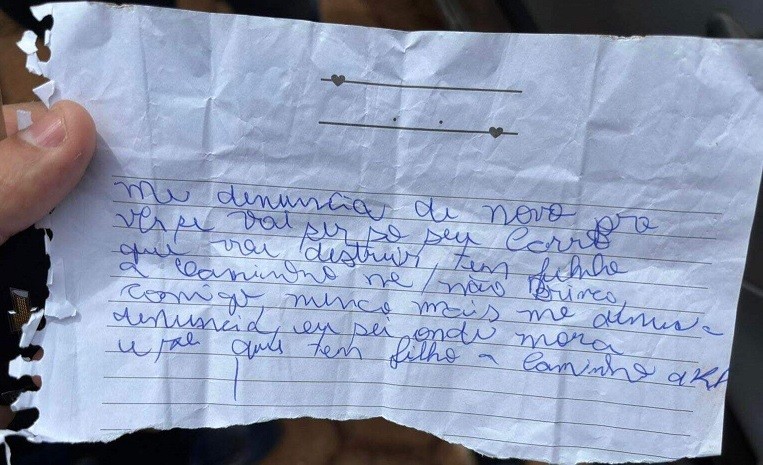 me denuncia de novo pra
ver se vai ser so seu Carro
que vai destruir, tem filho
a Caminho ne, não Brinca
comigo, nunca mais me
denuncia, eu sei onde mora
que tem filho a Caminho